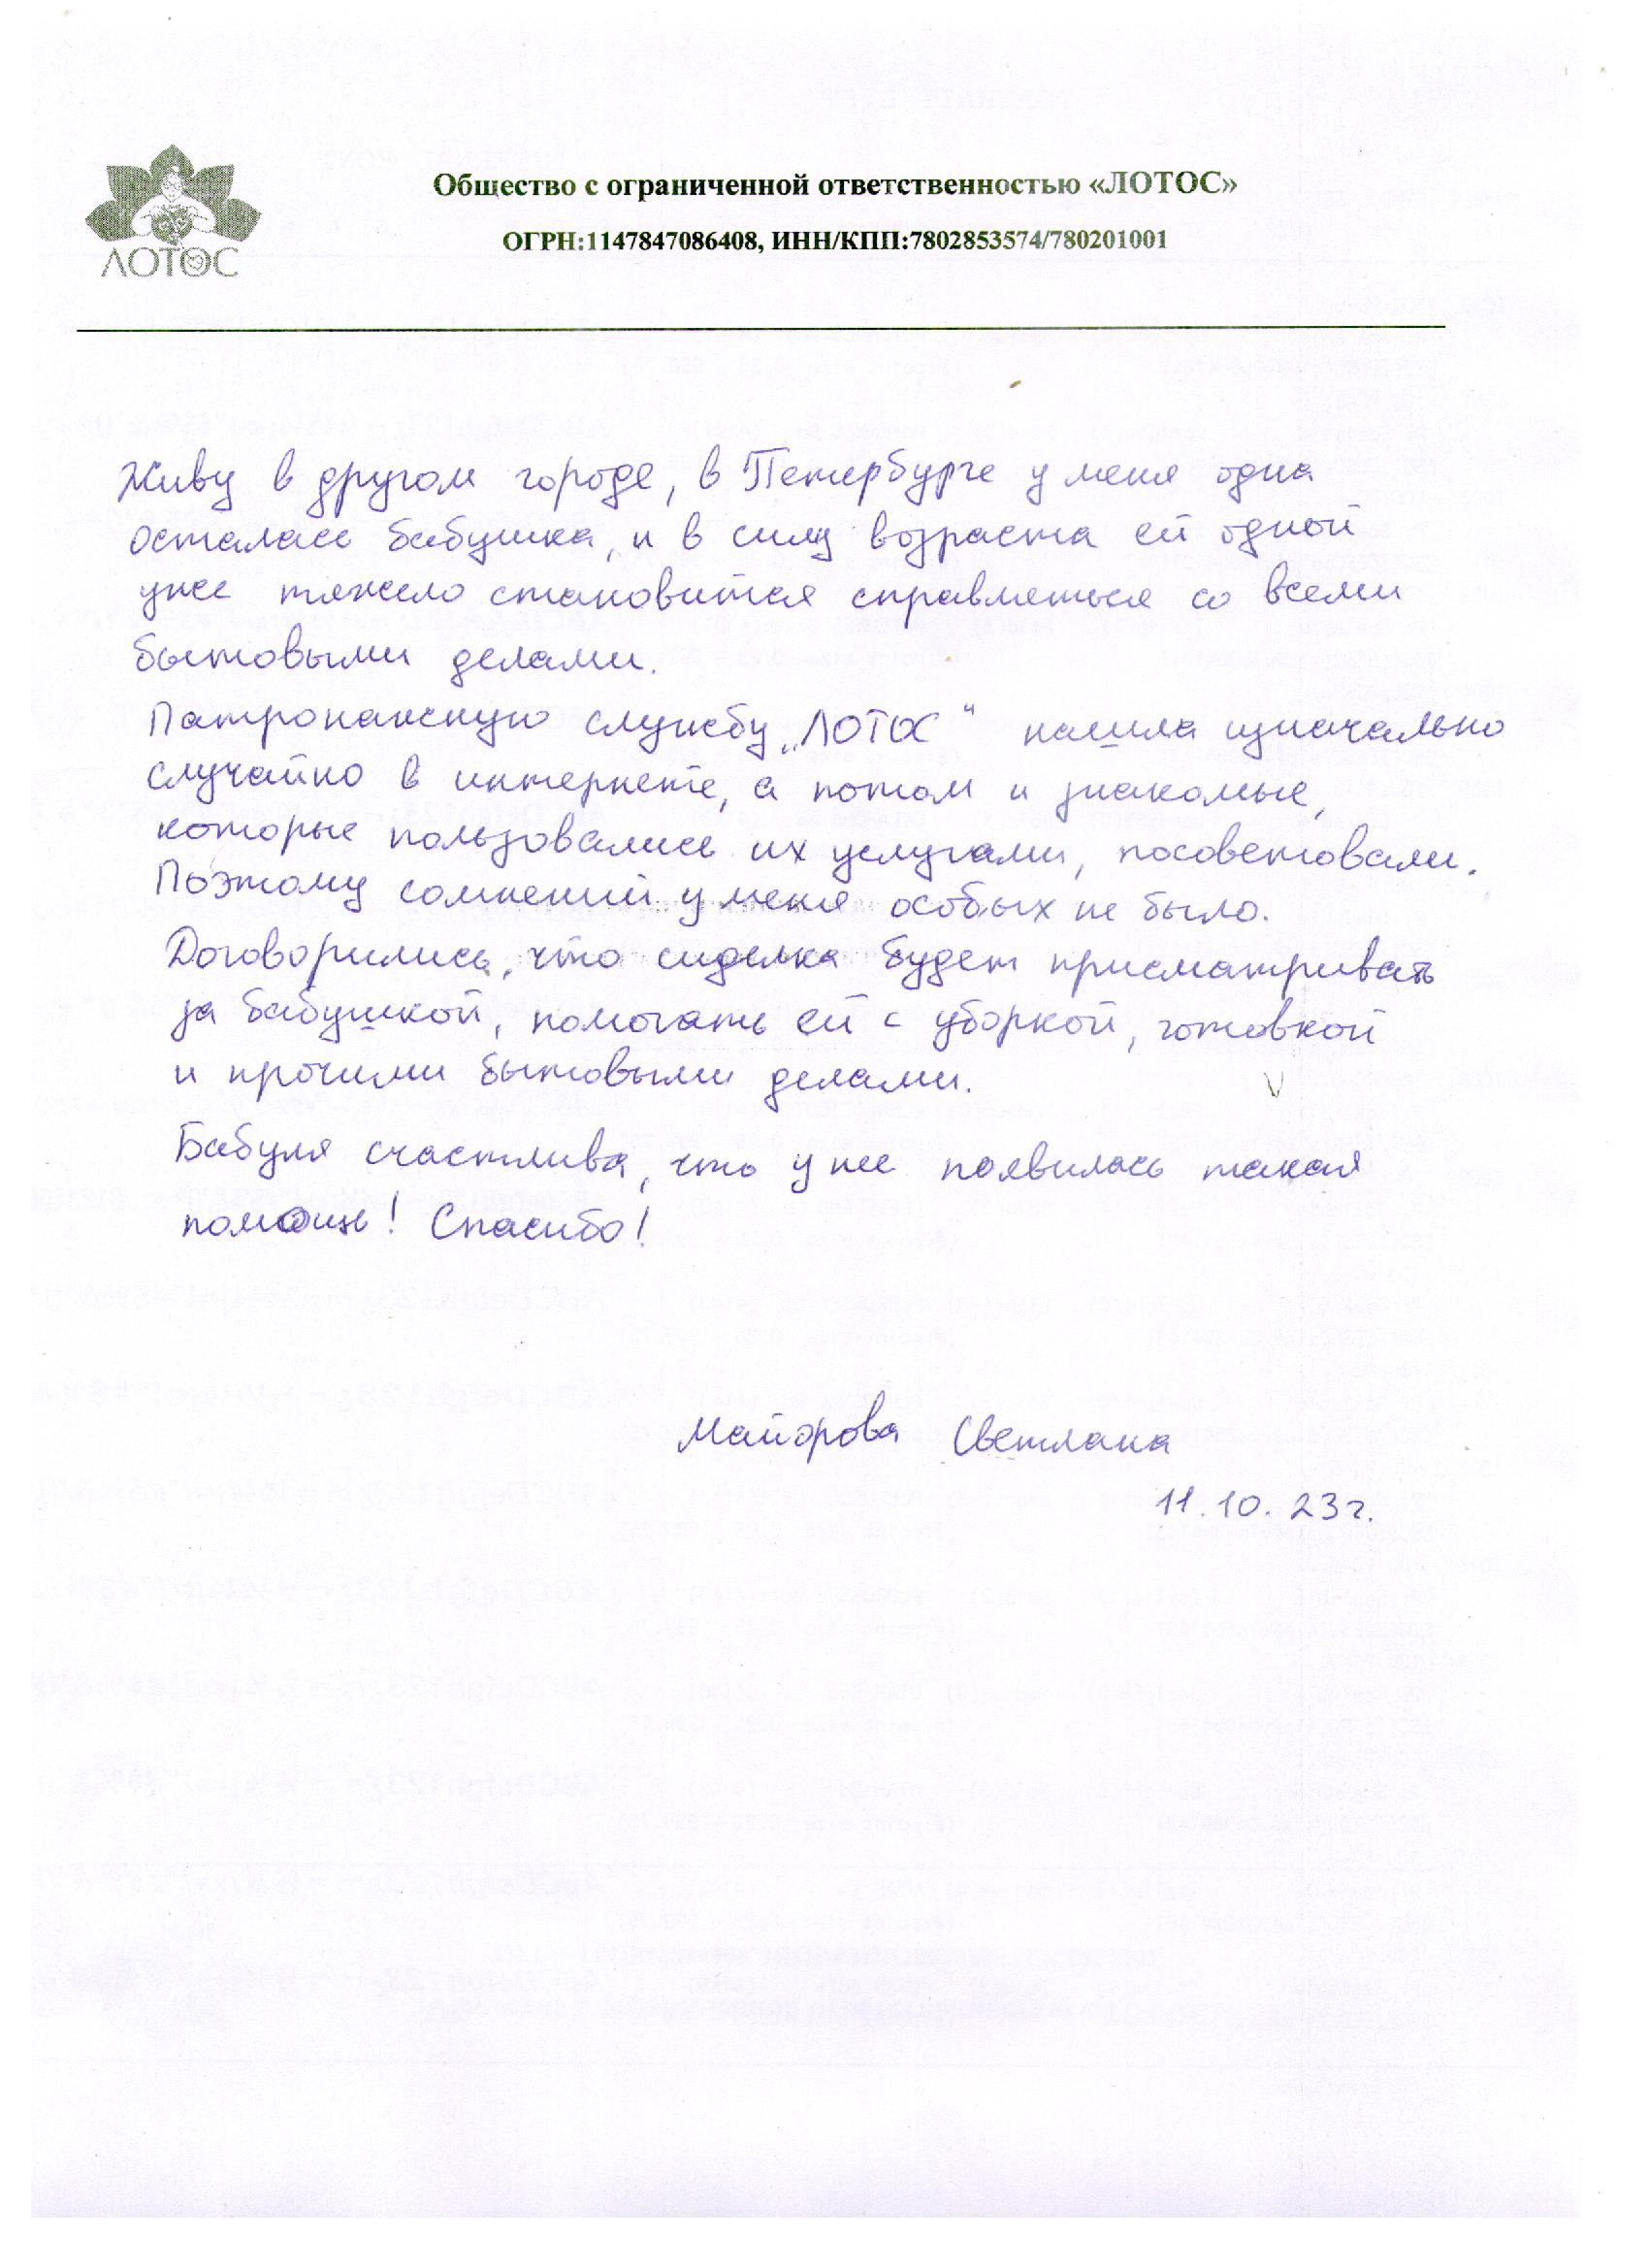 ЛОТОС
Общество с ограниченной ответственностью «ЛОТОС»
ОГРН:1147847086408, ИНН/КПП:7802853574/780201001
Живу в другом городе, в Петербурге у меня одна
осталась бабушка, и в силу возраста ей одной
уже тяжело становится справляться со всеми
бытовыми делами.
Патронажную службу „ЛОТОС“ нашла изначально
случайно в интернете, а потом и знакомые,
которые пользовались их услугами, посоветовали.
Поэтому сомнений у меня особых не было.
Договорились, что сиделка будет присматривать
за бабушкой, помогать ей с уборкой, готовкой
и прочими бытовыми делами.
Бабуля счастлива, что у нее появилась такая
помощь! Спасибо!
Майорова Светлана
11.10.23г.